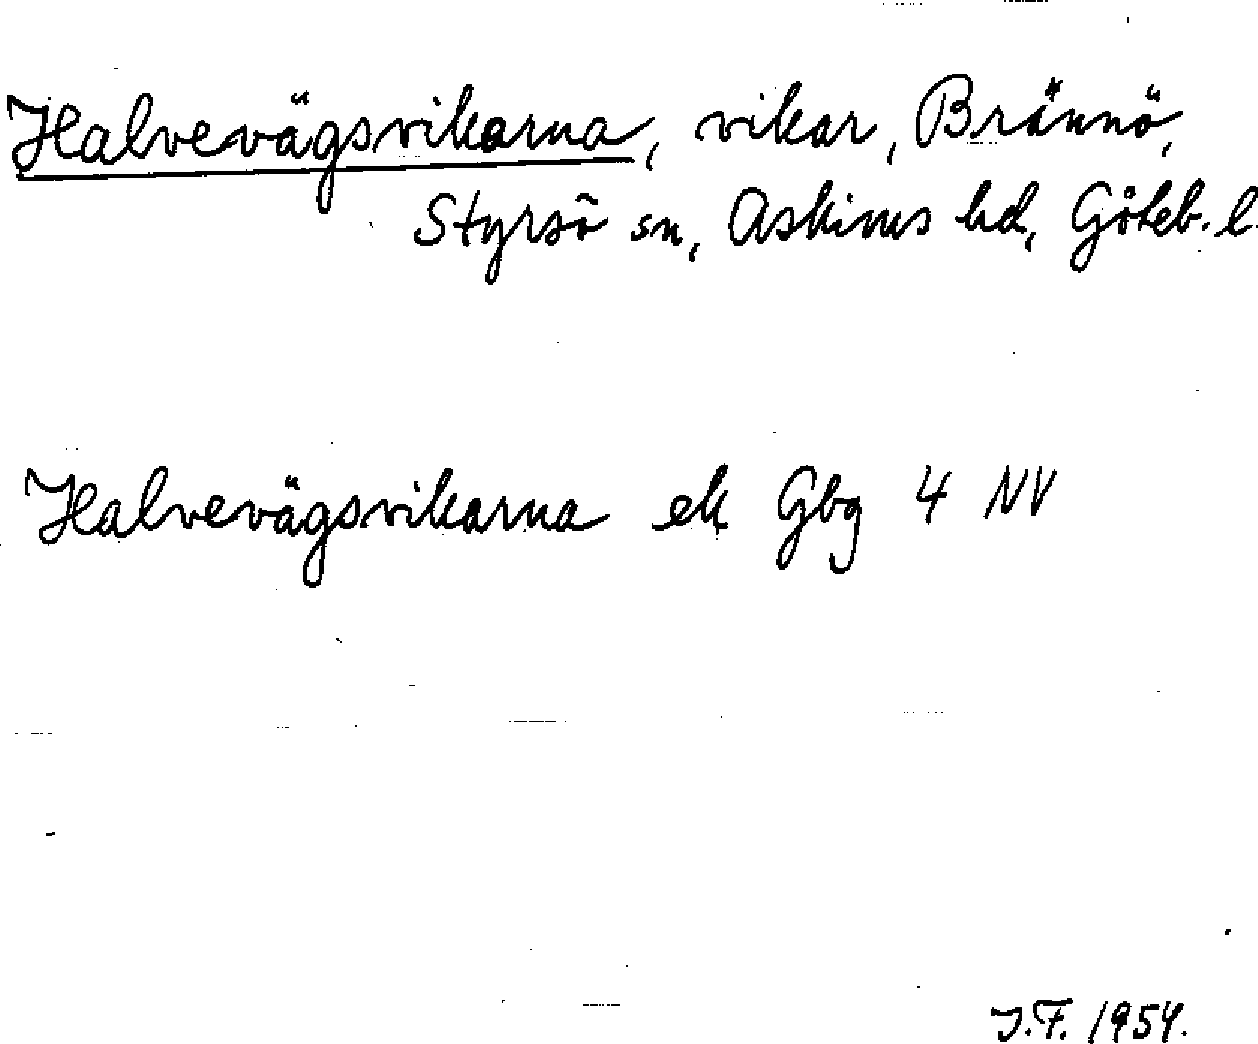 Halvevägsvikarna, vikar, Brännö,
Styrsö sn, Askims hd, Göteb. l.
Halvevägsvikarna ek Gbg 4 NV
J.F. 1954.